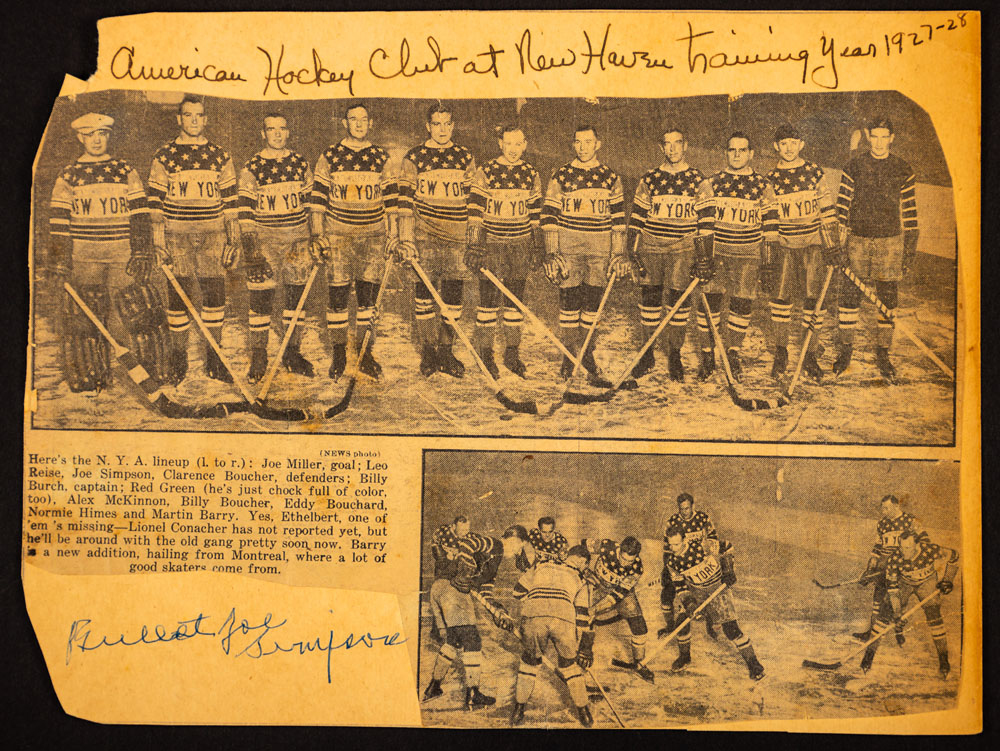 American Hockey Club at New Haven training Year 1927-28
NEW YORK
NEW YORK
NEW YORK
NEW YORK
NEW YORK
NEW YORK
NEW YORK
NEW YORK
NEW YORK
NEW YORK
(NEWS photo)
Here's the N. Y. A. lineup (l. to r.): Joe Miller, goal; Leo
Reise, Joe Simpson, Clarence Boucher, defenders; Billy
Burch, captain; Red Green (he's just chock full of color,
too), Alex McKinnon, Billy Boucher, Eddy Bouchard,
Normie Himes and Martin Barry. Yes, Ethelbert, one of
'em 's missing—Lionel Conacher has not reported yet, but
he'll be around with the old gang pretty soon now. Barry
is a new addition, hailing from Montreal, where a lot of
good skaters come from.
YORK
Bullet Joe
Simpson